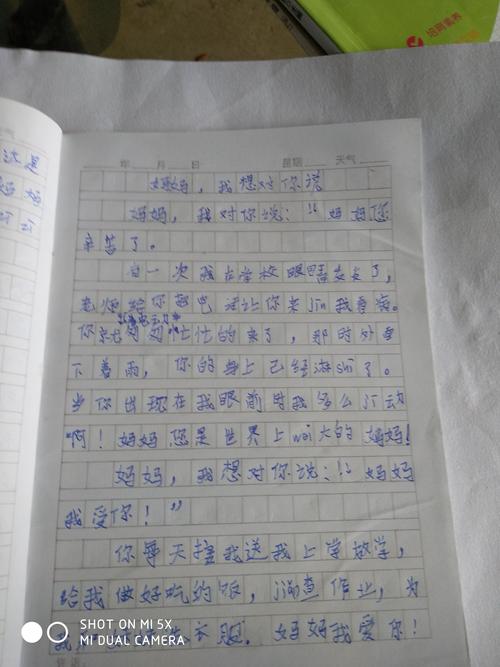 培育素养
这是
妈妈
年 月 日 星期 天气
妈妈，我想对你说
妈妈，我对你说：“妈妈您
辛苦了。
有一次我在学校眼
老师给你电话让你来jin我看病。
你就匆匆忙忙的来了，那时外面
下着雨，你的身上已经淋shi了。
当你出现在我眼前时我多么jī动
啊！妈妈您是世界上wěi大的妈妈！
妈妈，我想对你说：“妈妈
我爱你！”
你每天接我送我上学放学，
给我做好吃的饭，jiǎn查作业，为
我 衣服．妈妈我爱你！
SHOT ON MI 5X
MI DUAL CAMERA